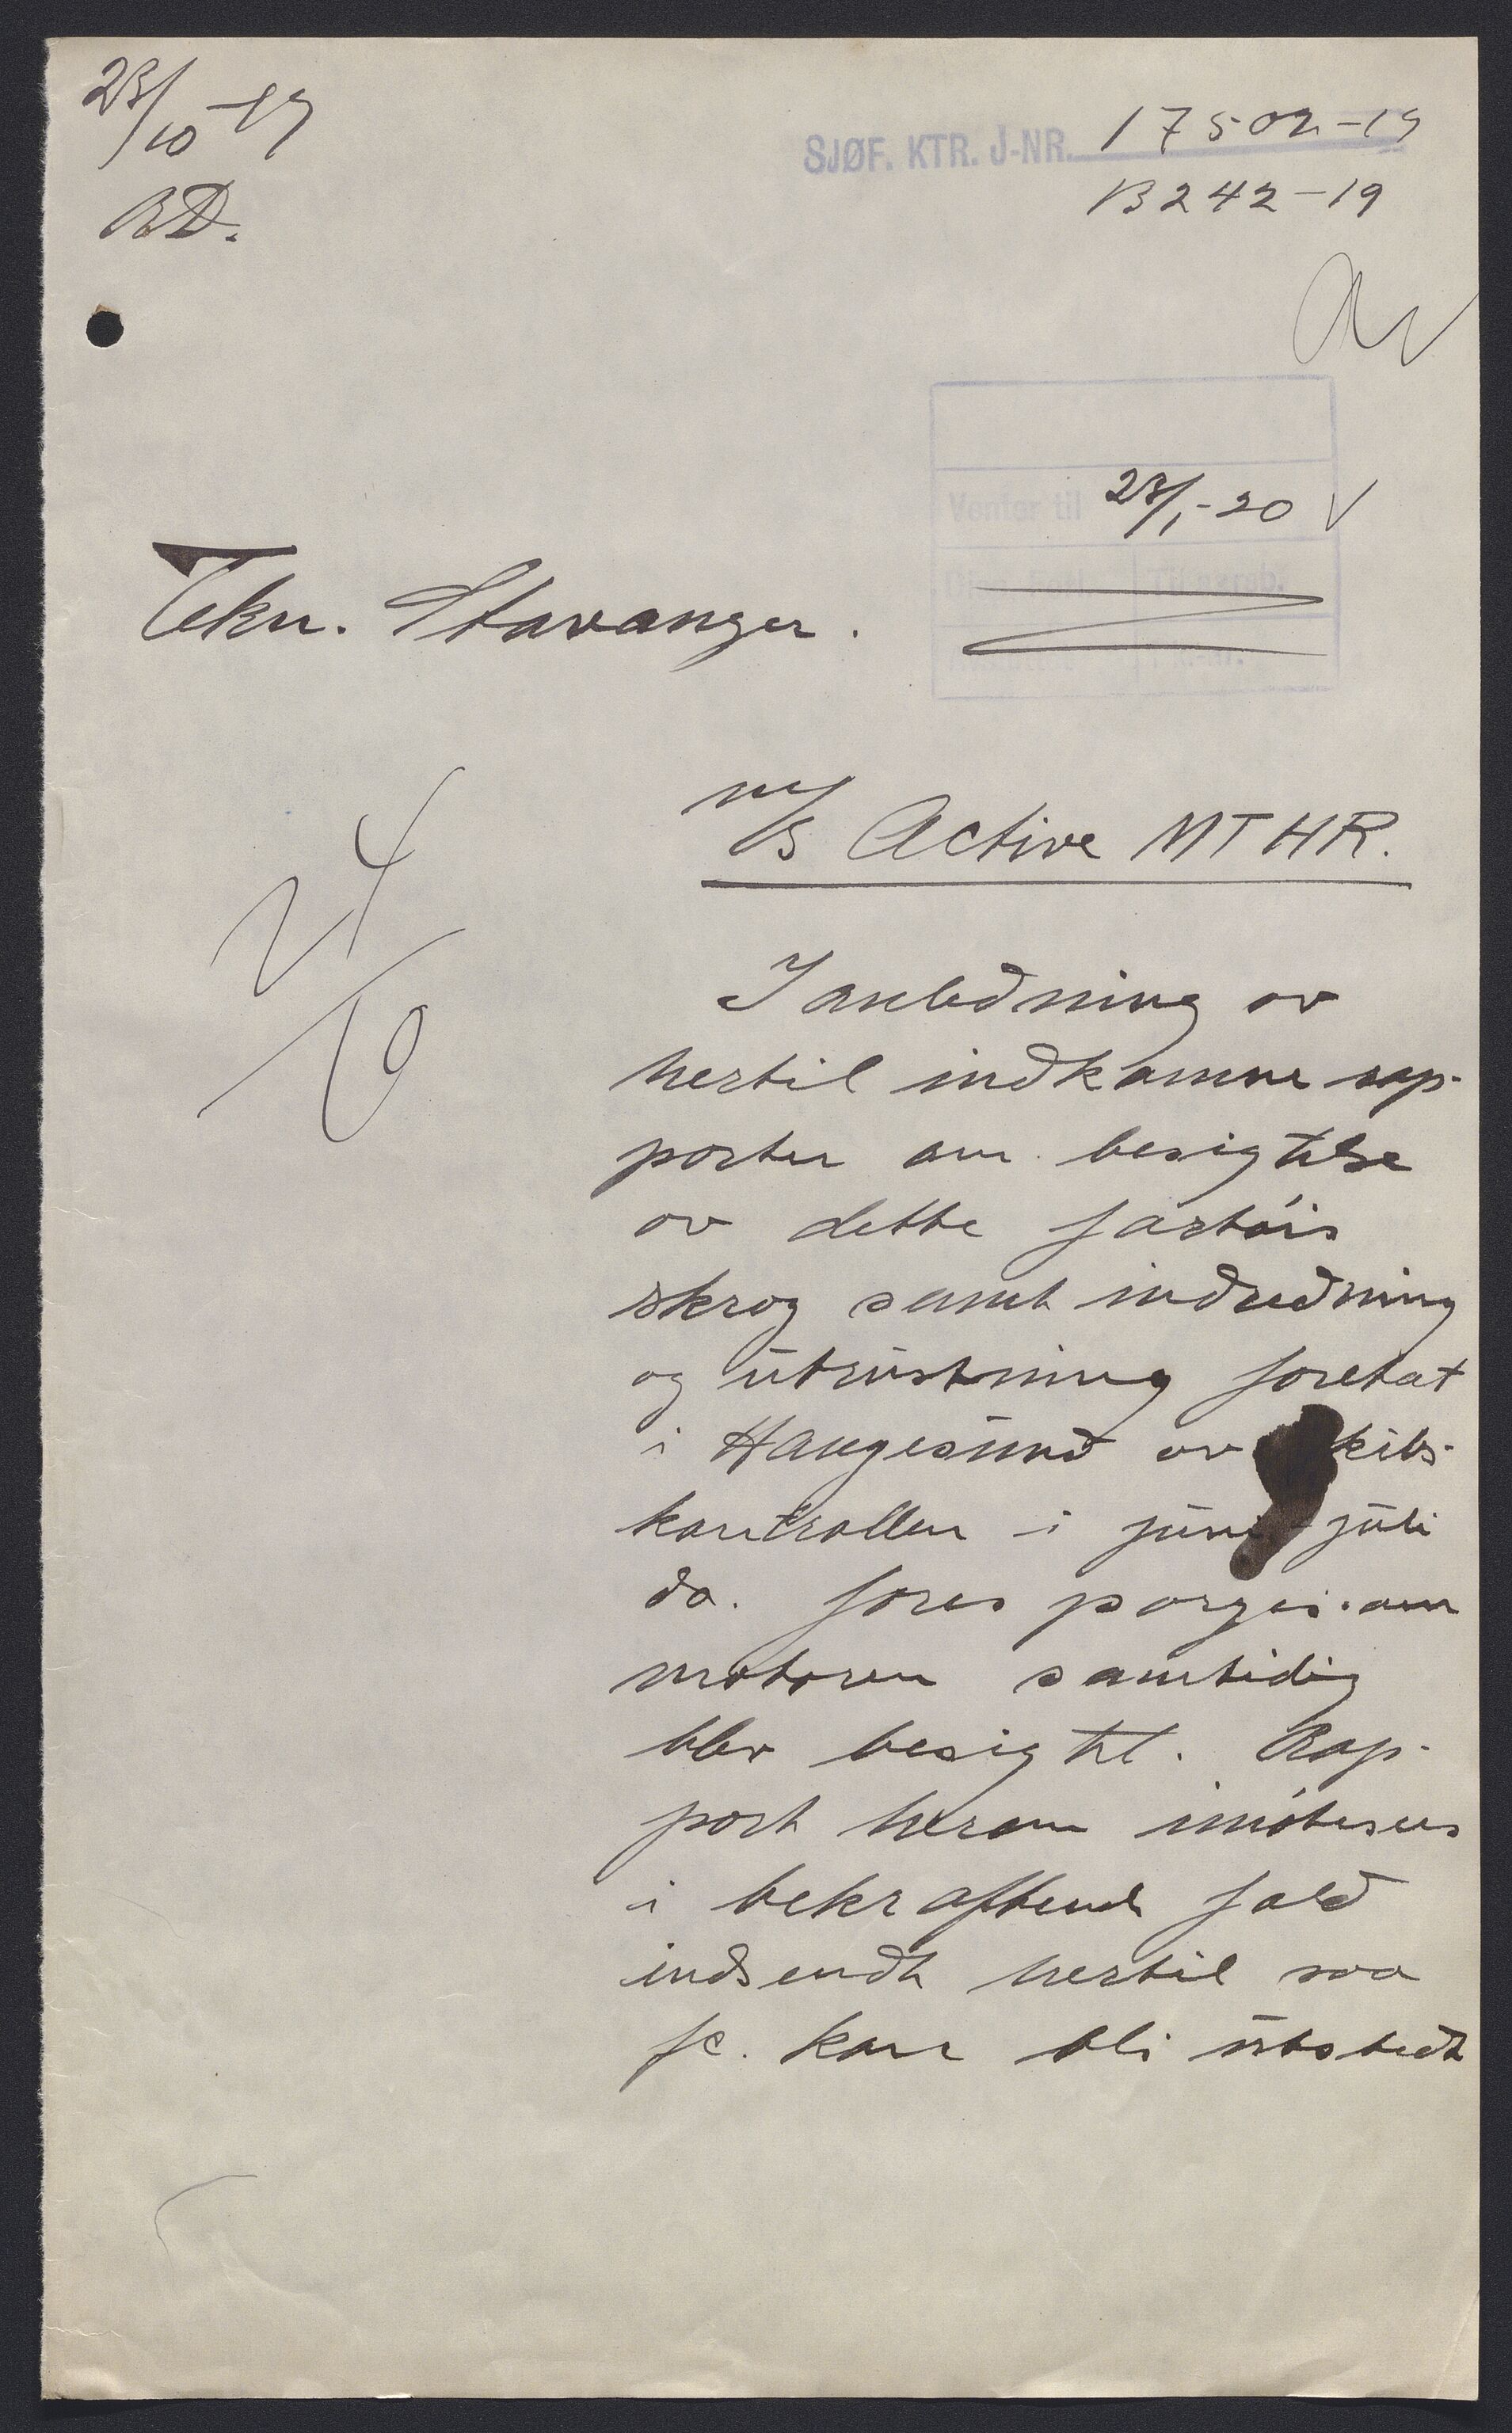 23/10-19
BD.
SJØF. KTR. J-NR. 17502-19
B242-19
Venter til 23/1-20
Tekn. Stavanger.
24/10
m/s Active MTHR.
I anledning av
hertil indkomne rap-
porter om besigtelse
av dette fartøis
skrog samt indredning
og utrustning foretat
i Haugesund av skibs-
kontrollen i juni-juli
da. forespørges om
motoren samtidig
blev besigtet. Rap-
port herom imøtesees
i bekræftende fald
indsendt hertil saa
fc. kan bli utstedt